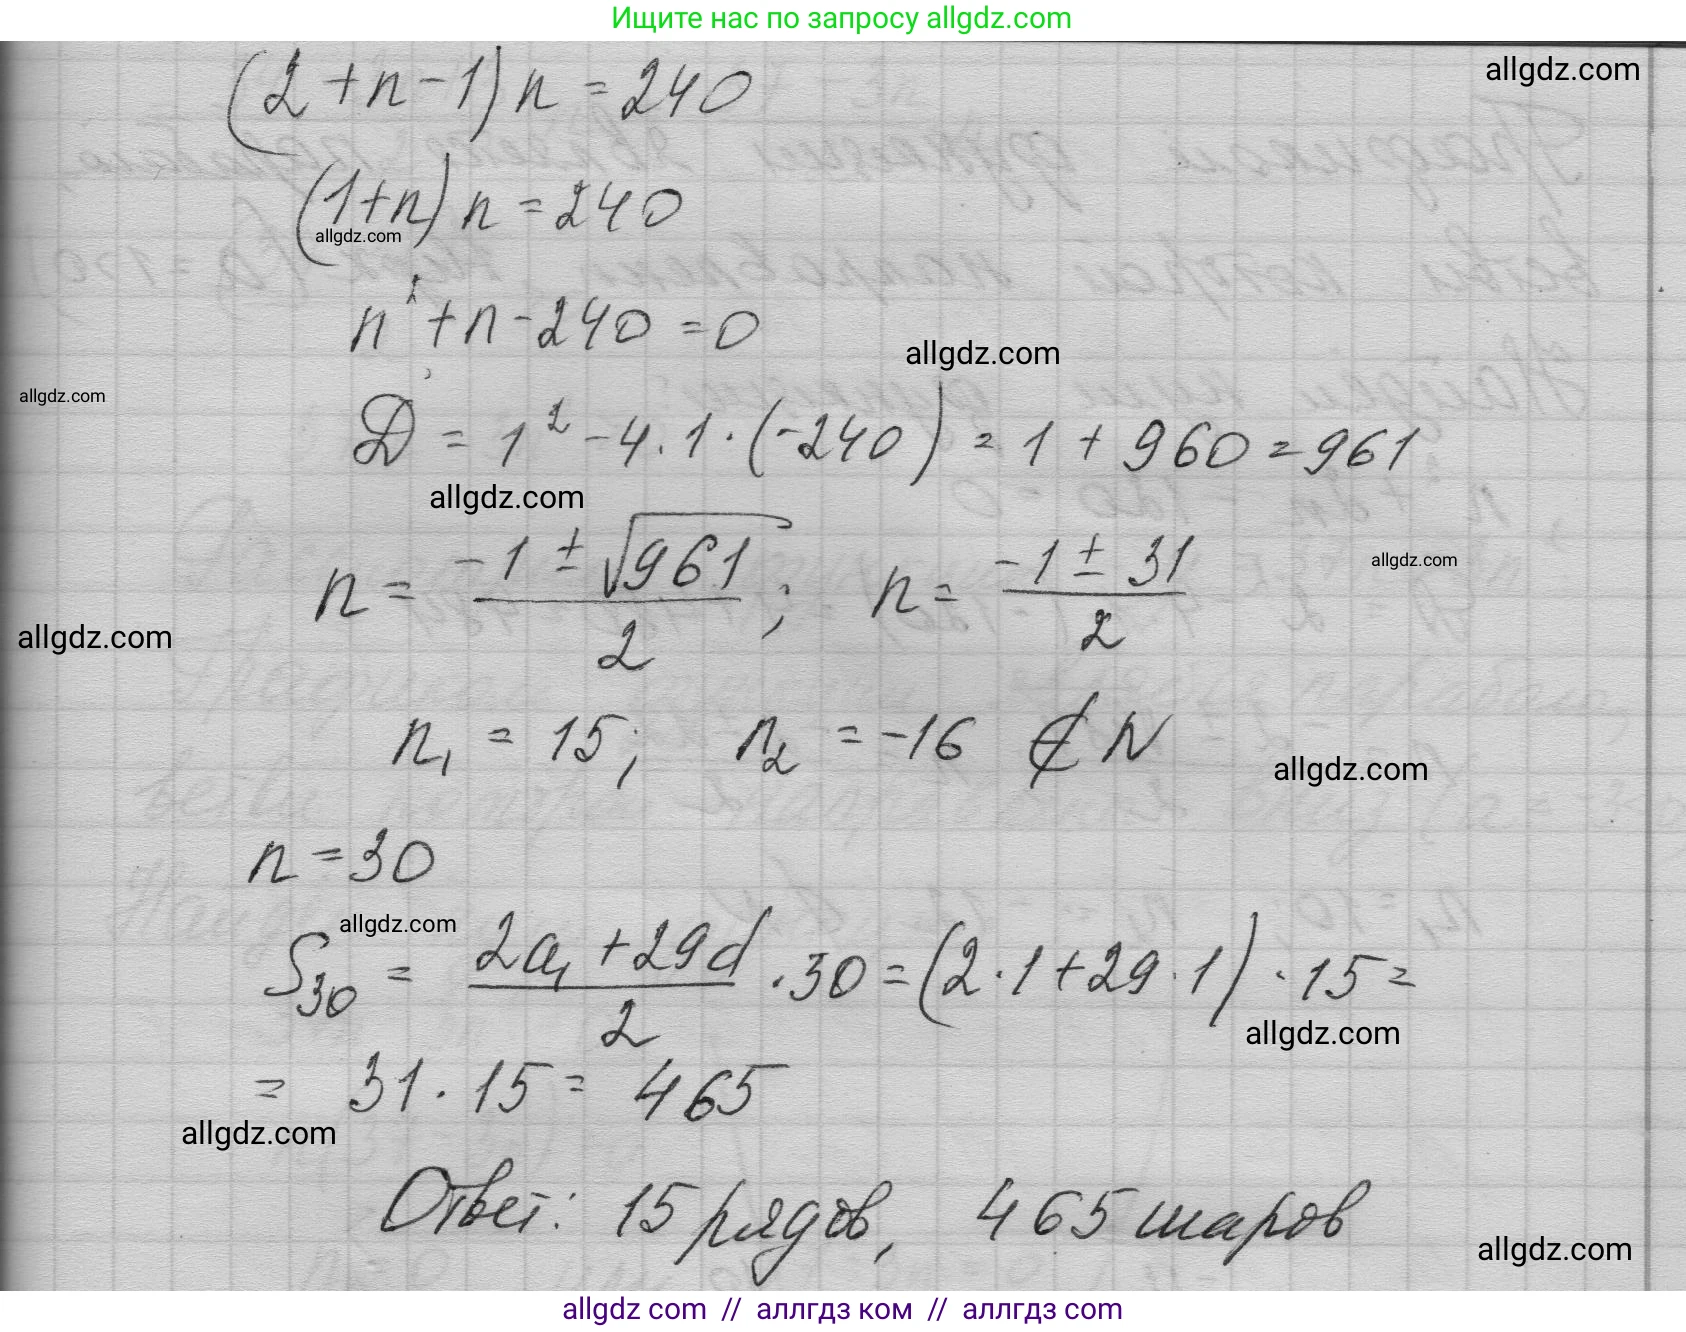 Ищите нас по запросу allgdz.com
allgdz.com
(2+n-1)n=240
(1+n)n=240
allgdz.com
n²+n-240=0
allgdz.com
allgdz.com
D=1²-4·1·(-240)=1+960=961
allgdz.com
n=(-1±√961)/2; n=(-1±31)/2
allgdz.com
allgdz.com
n₁=15; n₂=-16 ∉ N
allgdz.com
n=30
allgdz.com
S₃₀=(2a₁+29d)/2·30=(2·1+29·1)·15=
allgdz.com
=31·15=465
allgdz.com
Ответ: 15 рядов, 465 шаров
allgdz.com
allgdz com // аллгдз ком // аллгдз com